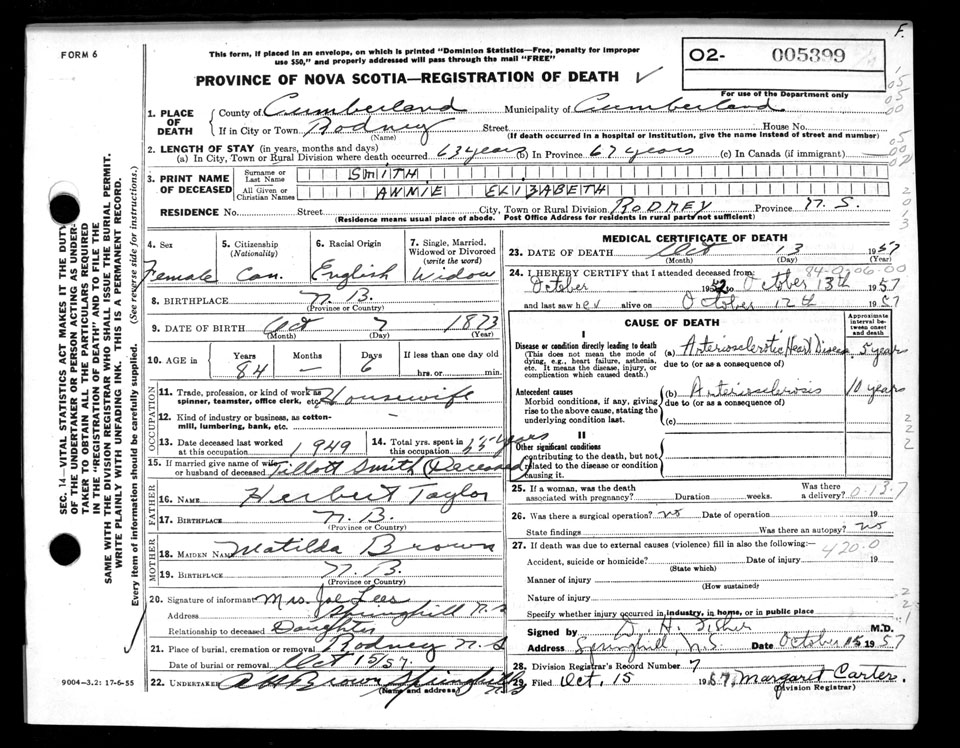 F.
FORM 6
This form, if placed in an envelope, on which is printed "Dominion Statistics—Free, penalty for improper
use $50," and properly addressed will pass through the mail "FREE"
O2- 005399
PROVINCE OF NOVA SCOTIA—REGISTRATION OF DEATH
For use of the Department only
1. PLACE OF DEATH County of Cumberland Municipality of Cumberland
If in City or Town Rodney Street House No.
(Name) (If death occurred in a hospital or institution, give the name instead of street and number)
2. LENGTH OF STAY (in years, months and days)
(a) In City, Town or Rural Division where death occurred 63 years (b) In Province 67 years (c) In Canada (if immigrant)
3. PRINT NAME OF DECEASED Surname or Last Name SMITH
All Given or Christian Names ANNIE ELIZABETH
RESIDENCE No. Street City, Town or Rural Division RODNEY Province N.S.
(Residence means usual place of abode. Post Office Address for residents in rural parts not sufficient)
4. Sex Female
5. Citizenship (Nationality) Can.
6. Racial Origin English
7. Single, Married, Widowed or Divorced (write the word) Widow
8. BIRTHPLACE N.B.
(Province or Country)
9. DATE OF BIRTH Oct 7 1873
(Month) (Day) (Year)
10. AGE in Years Months Days If less than one day old
84 — 6 hrs. or min.
OCCUPATION
11. Trade, profession, or kind of work as spinner, teamster, office clerk, etc. Housewife
12. Kind of industry or business, as cotton-mill, lumbering, bank, etc. —
13. Date deceased last worked at this occupation 1949
14. Total yrs. spent in this occupation years
15. If married give name of wife or husband of deceased Tillott Smith (Deceased)
FATHER
16. NAME Herbert Taylor
17. BIRTHPLACE N.B.
(Province or Country)
MOTHER
18. MAIDEN NAME Matilda Brown
19. BIRTHPLACE N.B.
(Province or Country)
20. Signature of informant Mrs. Joe Lees
Address Springhill N.S
Relationship to deceased Daughter
21. Place of burial, cremation or removal Rodney N.S
Date of burial or removal Oct 15/57.
22. UNDERTAKER A H Brown Springhill N.S
(Name and address)
MEDICAL CERTIFICATE OF DEATH
23. DATE OF DEATH Oct 13 1957
(Month) (Day) (Year)
24. I HEREBY CERTIFY that I attended deceased from: 84-0206-00
October 1952 to October 13th 1957
and last saw her alive on October 12th 1957
CAUSE OF DEATH
Approximate interval between onset and death
I
Disease or condition directly leading to death
(This does not mean the mode of dying, e.g., heart failure, asthenia, etc. It means the disease, injury, or complication which caused death.)
(a) Arteriosclerotic Heart Disease 5 years
due to (or as a consequence of)
Antecedent causes
Morbid conditions, if any, giving rise to the above cause, stating the underlying condition last.
(b) Arteriosclerosis 10 years
due to (or as a consequence of)
(c)
II
Other significant conditions
contributing to the death, but not related to the disease or condition causing it.
25. If a woman, was the death associated with pregnancy? Duration weeks. Was there a delivery? 0-13-7
26. Was there a surgical operation? No Date of operation 19
State findings Was there an autopsy? No
27. If death was due to external causes (violence) fill in also the following:— 420.0
Accident, suicide or homicide? Date of injury 19
(State which)
Manner of injury
(How sustained)
Nature of injury
Specify whether injury occurred in industry, in home, or in public place
Signed by D. H. Fisher M.D.
Address Springhill, N.S Date October 15 1957
28. Division Registrar's Record Number 7
29. Filed Oct. 15 1957, Margaret Carter.
(Division Registrar)
SEC. 14—VITAL STATISTICS ACT MAKES IT THE DUTY
OF THE UNDERTAKER OR PERSON ACTING AS UNDER-
TAKER TO OBTAIN ALL THE PARTICULARS REQUIRED
IN THE "REGISTRATION OF DEATH" AND TO FILE THE
SAME WITH THE DIVISION REGISTRAR WHO SHALL ISSUE THE BURIAL PERMIT.
WRITE PLAINLY WITH UNFADING INK. THIS IS A PERMANENT RECORD.
Every item of information should be carefully supplied. (See reverse side for instructions.)
9004—3.2: 17-6-55